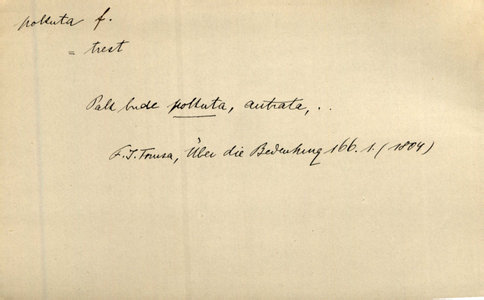 pokuta f.
= trest
Pak bude pokuta, autrata, ..
F. J. Tomsa, Über die Bedeutung 166. 1. (1804)